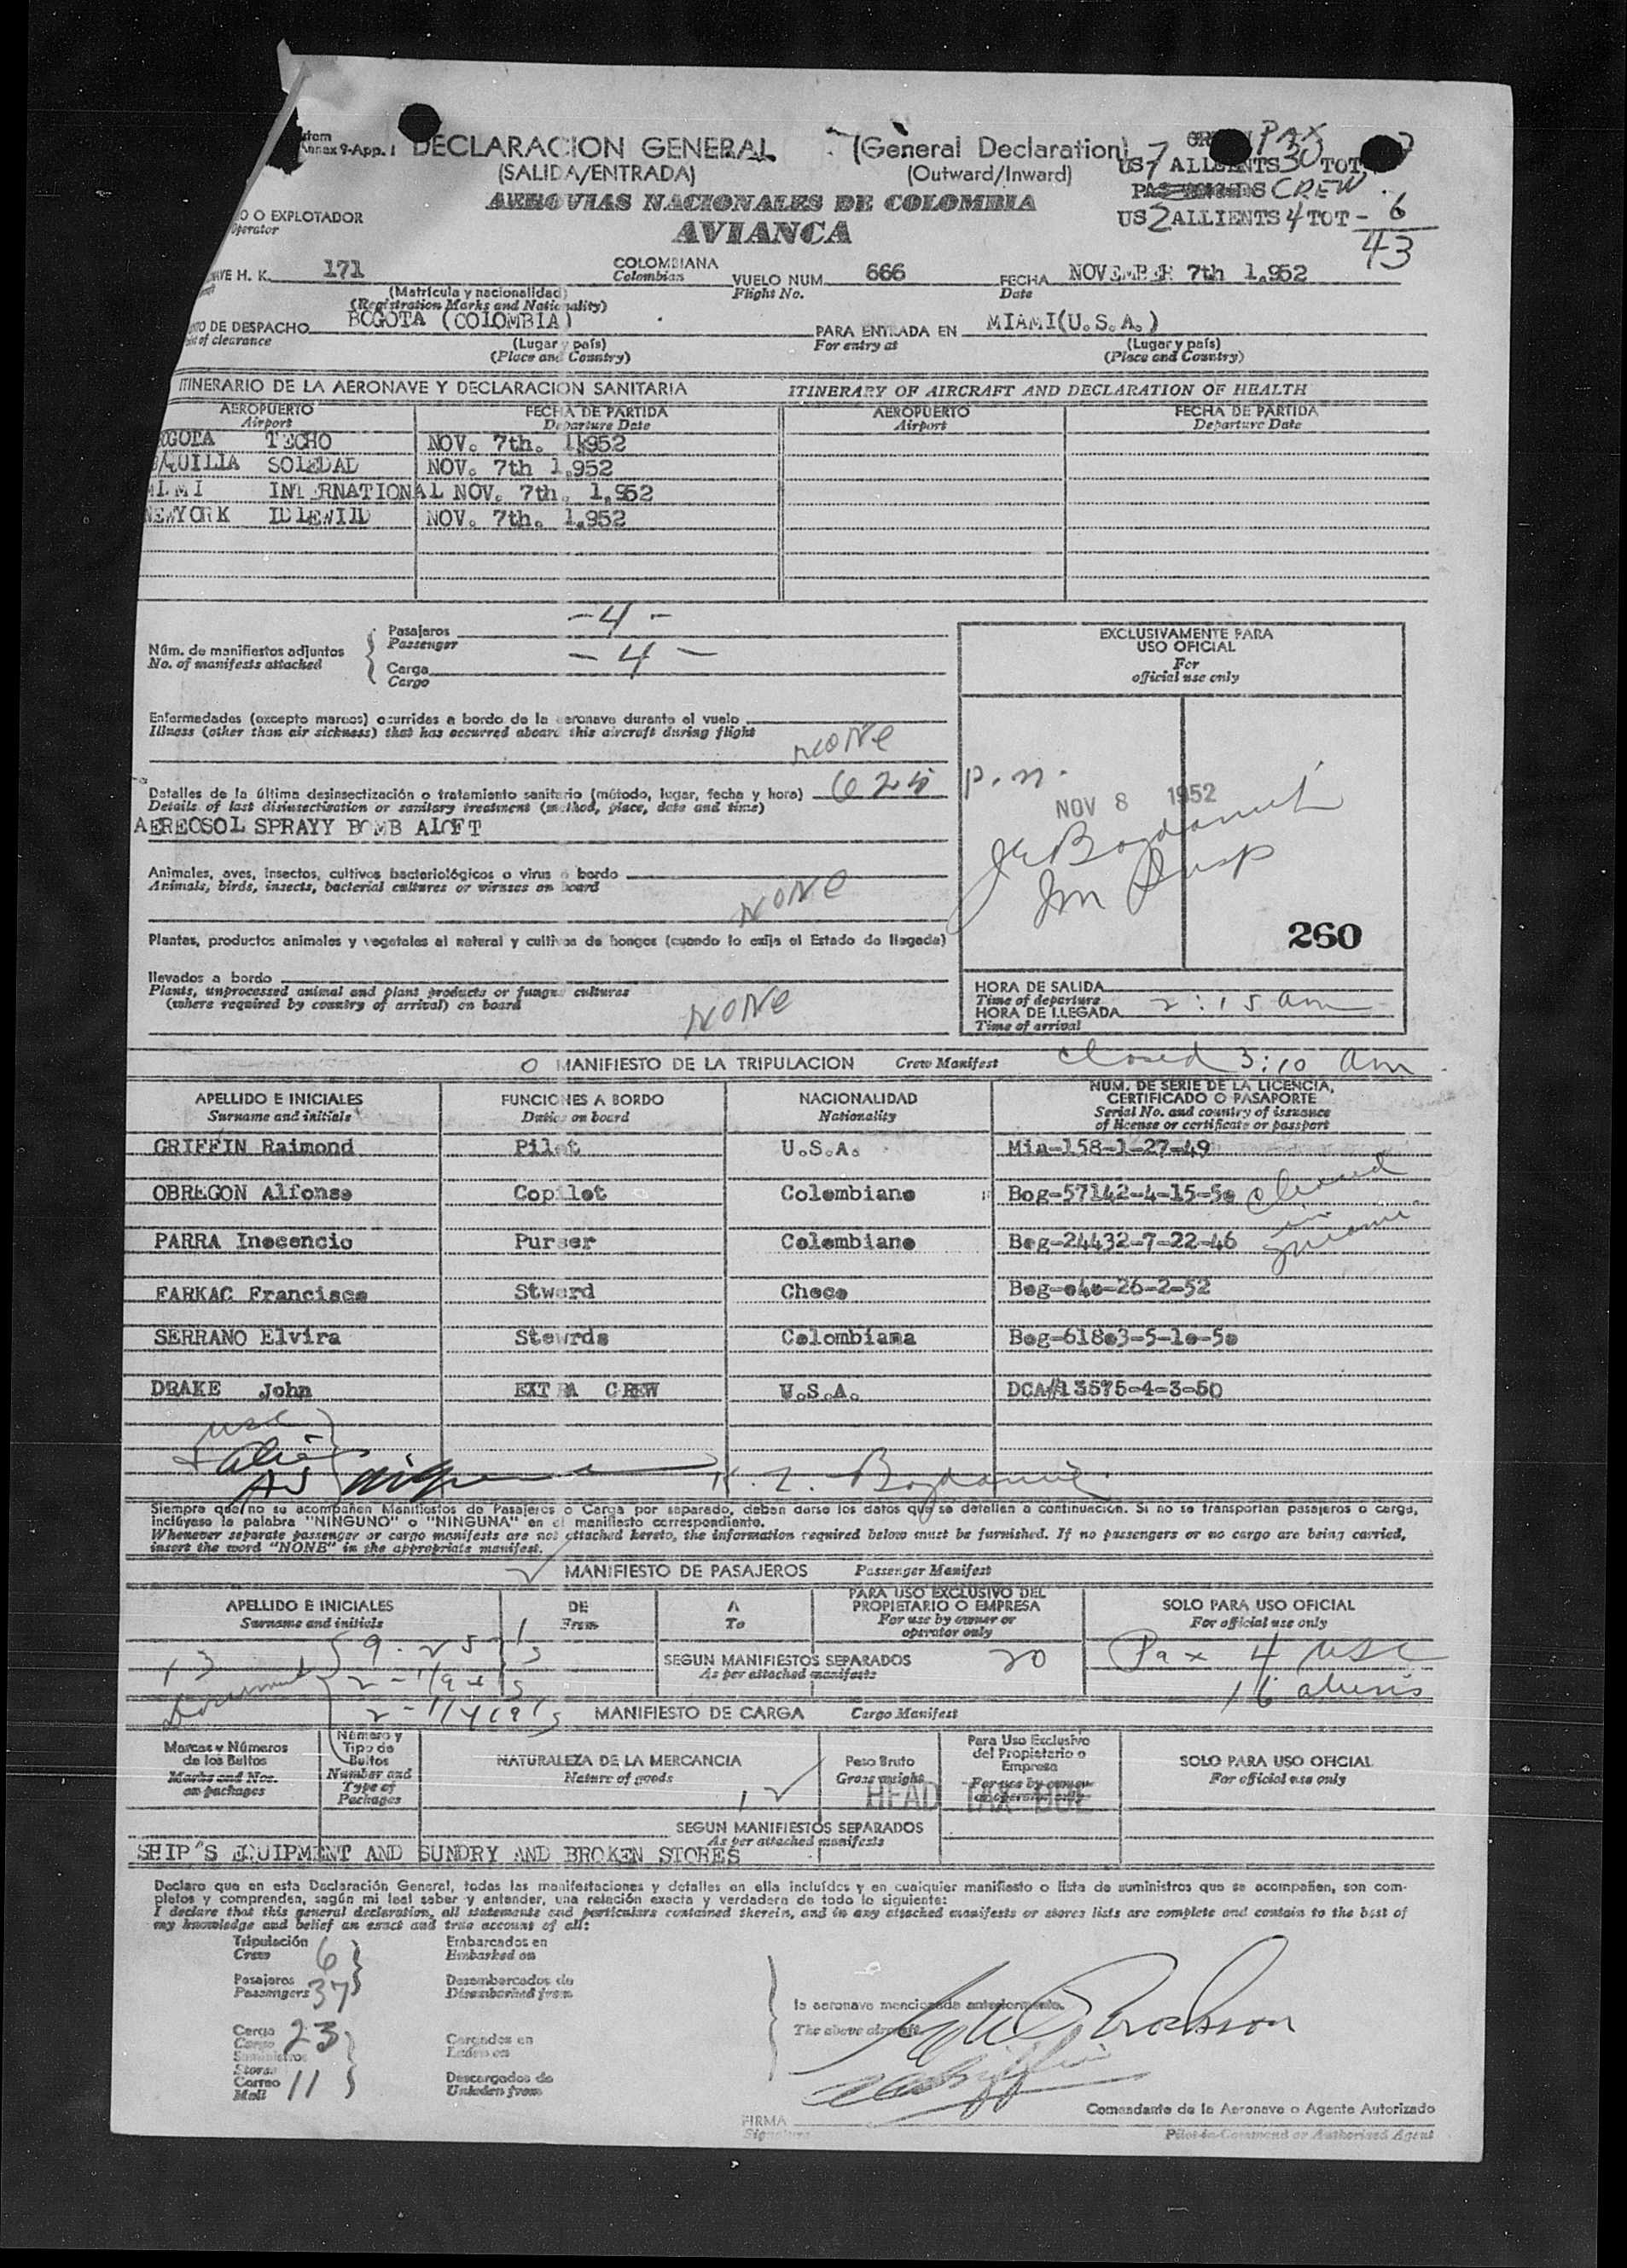 Annex 9-App. 1 DECLARACION GENERAL (General Declaration) PAX
(SALIDA/ENTRADA) (Outward/Inward) US 7 ALLIENTS 30 TOT
AEROVIAS NACIONALES DE COLOMBIA CREW
AVIANCA US 2 ALLIENTS 4 TOT - 6
43
O EXPLOTADOR
Operator
H. K. 171 COLOMBIANA VUELO NUM. 666 FECHA NOVEMBER 7th 1.952
Colombian Flight No. Date
(Matrícula y nacionalidad)
(Registration Marks and Nationality)
DE DESPACHO BOGOTA (COLOMBIA) PARA ENTRADA EN MIAMI(U.S.A.)
of clearance (Lugar y país) For entry at (Lugar y país)
(Place and Country) (Place and Country)
ITINERARIO DE LA AERONAVE Y DECLARACION SANITARIA ITINERARY OF AIRCRAFT AND DECLARATION OF HEALTH
AEROPUERTO FECHA DE PARTIDA AEROPUERTO FECHA DE PARTIDA
Airport Departure Date Airport Departure Date
OGOTA TECHO NOV. 7th. 1.952
QUILIA SOLEDAD NOV. 7th 1.952
MI INTERNATIONAL NOV. 7th. 1.952
NEWYORK IDLEWILD NOV. 7th. 1.952
Núm. de manifiestos adjuntos Pasajeros -4-
No. of manifests attached Passenger
Carga -4-
Cargo
EXCLUSIVAMENTE PARA
USO OFICIAL
For
official use only
Enfermedades (excepto mareos) ocurridas a bordo de la aeronave durante el vuelo
Illness (other than air sickness) that has occurred aboard this aircraft during flight
NONE
Detalles de la última desinsectización o tratamiento sanitario (método, lugar, fecha y hora) 625 p.m.
Details of last disinsectisation or sanitary treatment (method, place, date and time)
AEREOSOL SPRAYY BOMB ALOFT
NOV 8 1952
Animales, aves, insectos, cultivos bacteriológicos o virus a bordo
Animals, birds, insects, bacterial cultures or viruses on board
NONE
260
Plantas, productos animales y vegetales al natural y cultivos de hongos (cuando lo exija el Estado de llegada)
llevados a bordo
Plants, unprocessed animal and plant products or fungus cultures
(where required by country of arrival) on board
NONE
HORA DE SALIDA
Time of departure 2:15 am
HORA DE LLEGADA
Time of arrival
MANIFIESTO DE LA TRIPULACION Crew Manifest closed 3:10 am
APELLIDO E INICIALES FUNCIONES A BORDO NACIONALIDAD NUM. DE SERIE DE LA LICENCIA,
CERTIFICADO O PASAPORTE
Surname and initials Duties on board Nationality Serial No. and country of issuance
of license or certificate or passport
GRIFFIN Raimond Pilot U.S.A. Mia-158-1-27-49
OBREGON Alfonso Copilot Colombiano Bog-57142-4-15-5o
PARRA Inocencio Purser Colombiano Bog-24432-7-22-46
FARKAC Francisco Stward Checo Bog-o4o-26-2-52
SERRANO Elvira Stewrds Colombiana Bog-618o3-5-1o-5o
DRAKE John EXTRA CREW U.S.A. DCA#13575-4-3-50
Siempre que no se acompañen Manifiestos de Pasajeros o Carga por separado, deben darse los datos que se detallan a continuación. Si no se transportan pasajeros o carga,
inclúyase la palabra "NINGUNO" o "NINGUNA" en el manifiesto correspondiente.
Whenever separate passenger or cargo manifests are not attached hereto, the information required below must be furnished. If no passengers or no cargo are being carried,
insert the word "NONE" in the appropriate manifest.
MANIFIESTO DE PASAJEROS Passenger Manifest
APELLIDO E INICIALES DE A PARA USO EXCLUSIVO DEL
PROPIETARIO O EMPRESA SOLO PARA USO OFICIAL
Surname and initials From To For use by owner or
operator only For official use only
SEGUN MANIFIESTOS SEPARADOS 20 Pax 4 USC
As per attached manifests 16 aliens
MANIFIESTO DE CARGA Cargo Manifest
Marcas y Números
de los Bultos
Marks and Nos.
on packages
Número y
Tipo de
Bultos
Number and
Type of
Packages
NATURALEZA DE LA MERCANCIA
Nature of goods
Peso Bruto
Gross weight
Para Uso Exclusivo
del Propietario o
Empresa
For use by owner
or operator only
SOLO PARA USO OFICIAL
For official use only
HEAD TAX DUE
SEGUN MANIFIESTOS SEPARADOS
As per attached manifests
SHIP"S EQUIPMENT AND SUNDRY AND BROKEN STORES
Declaro que en esta Declaración General, todas las manifestaciones y detalles en ella incluídos y en cualquier manifiesto o lista de suministros que se acompañen, son com-
pletos y comprenden, según mi leal saber y entender, una relación exacta y verdadera de todo lo siguiente:
I declare that this general declaration, all statements and particulars contained therein, and in any attached manifests or stores lists are complete and contain to the best of
my knowledge and belief an exact and true account of all:
Tripulación 6 Embarcados en
Crew Embarked on
Pasajeros 37 Desembarcados de
Passengers Disembarked from
la aeronave mencionada anteriormente.
The above aircraft
Carga 23 Cargados en
Cargo Laden on
Suministros
Stores
Correo 11 Descargados de
Mail Unladen from
FIRMA Comandante de la Aeronave o Agente Autorizado
Signature Pilot-in-Command or Authorised Agent